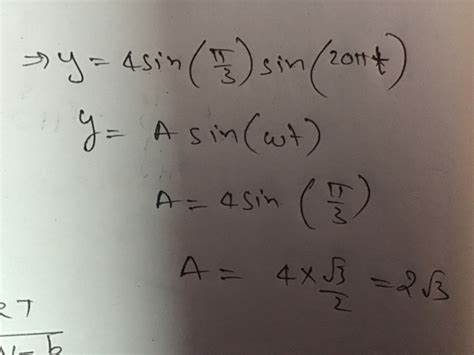 ⇒ y = 4sin(π/3) sin(20πt)
y = A sin(ωt)
A = 4sin (π/3)
A = 4×√3/2 = 2√3